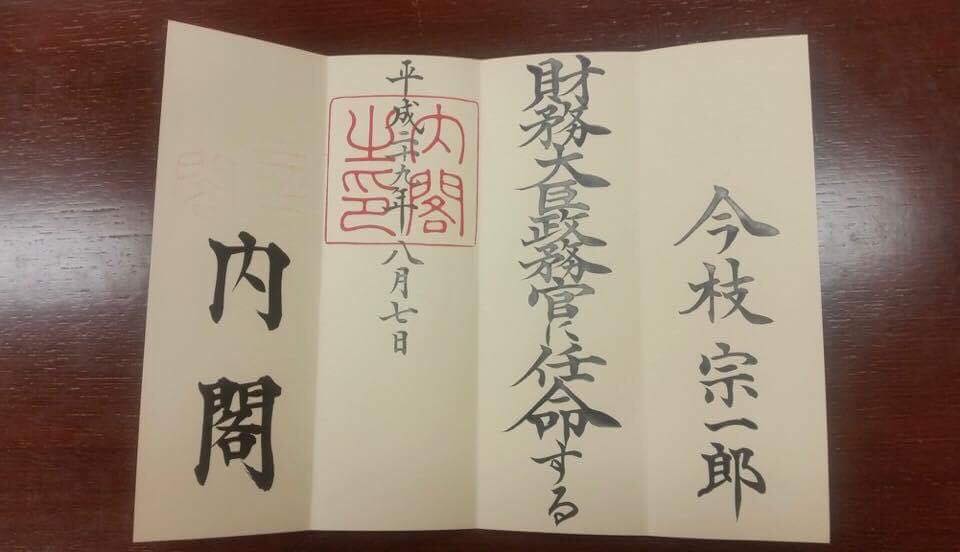 今枝宗一郎
財務大臣政務官に任命する
平成二十九年八月七日
内閣之印
内閣